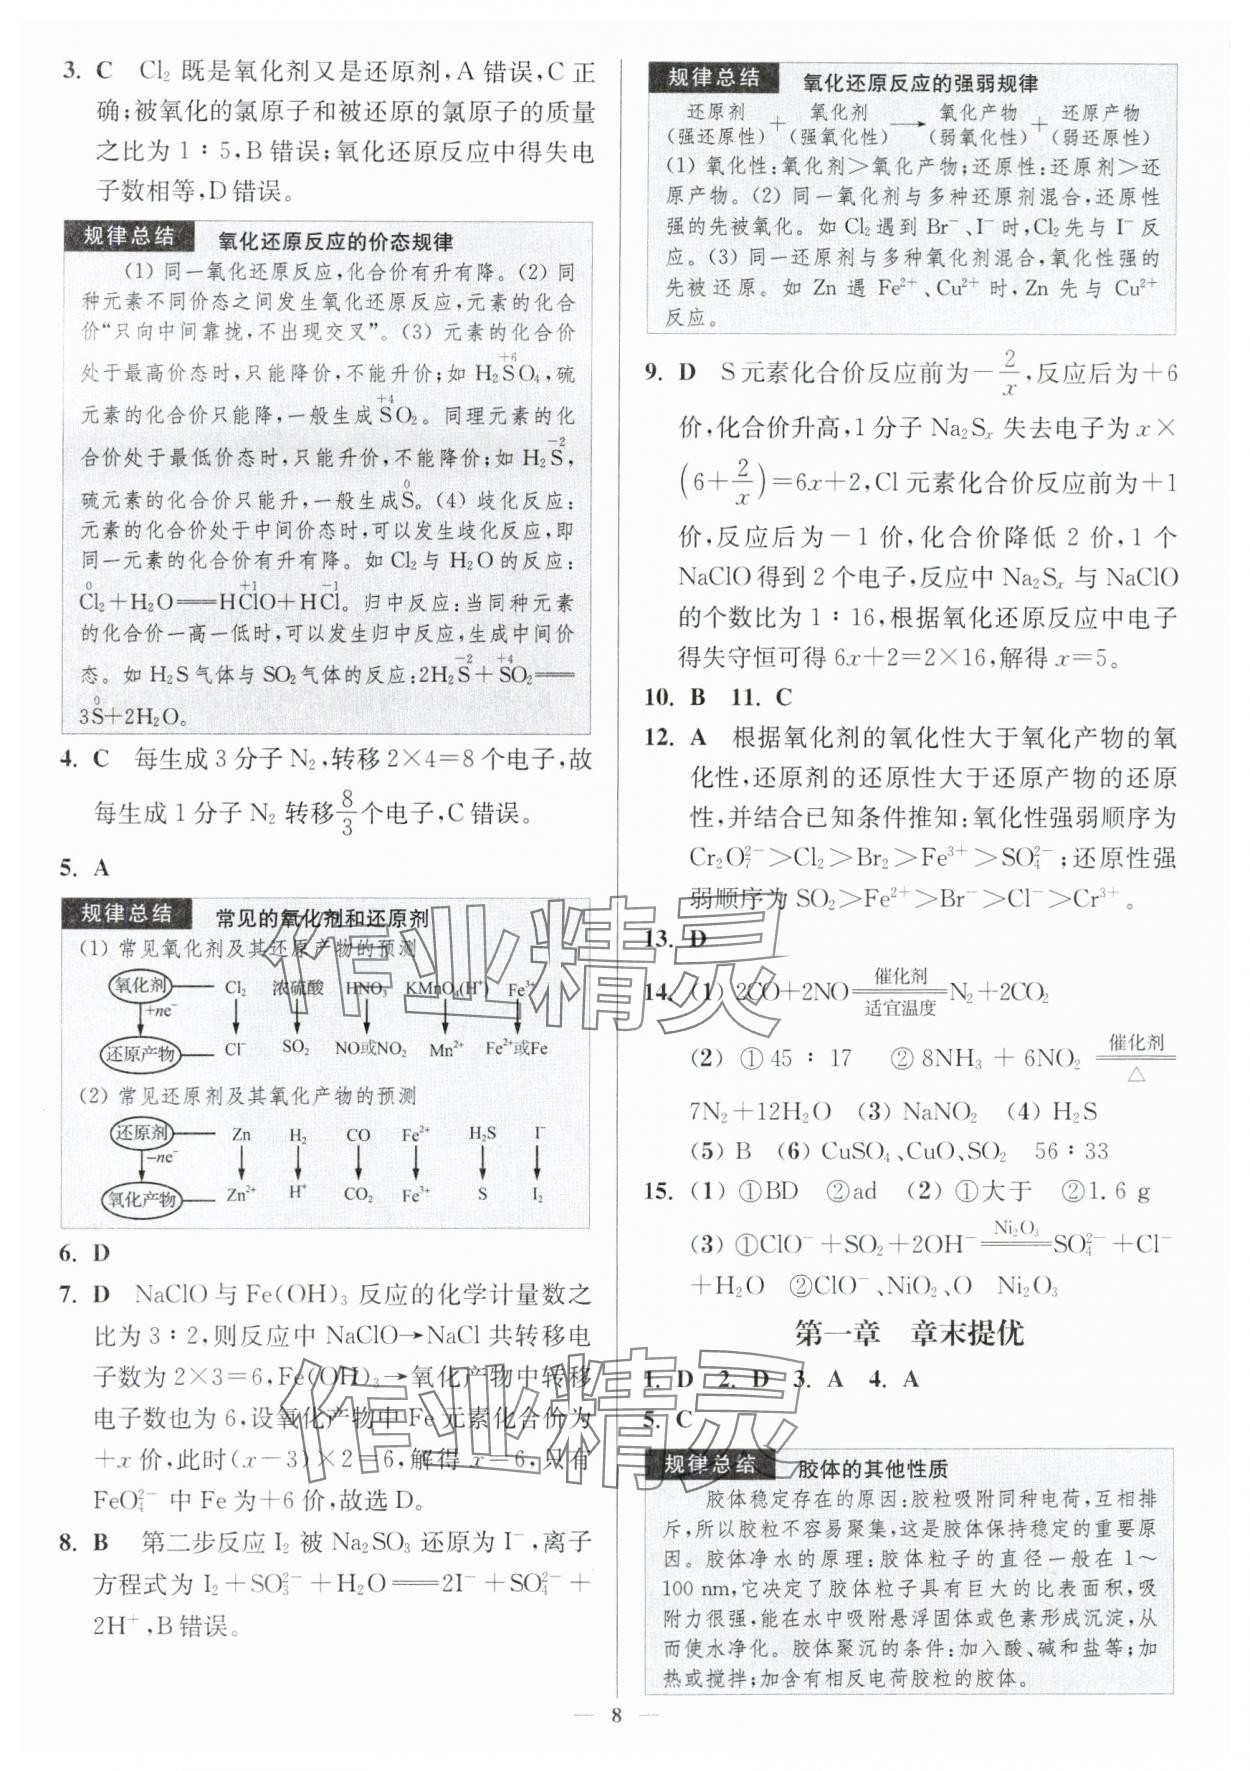 3. C Cl₂ 既是氧化剂又是还原剂,A 错误,C 正
确;被氧化的氯原子和被还原的氯原子的质量
之比为 1∶5,B 错误;氧化还原反应中得失电
子数相等,D 错误。
规律总结 氧化还原反应的价态规律
(1) 同一氧化还原反应,化合价有升有降。(2) 同
种元素不同价态之间发生氧化还原反应,元素的化合
价“只向中间靠拢,不出现交叉”。(3) 元素的化合价
处于最高价态时,只能降价,不能升价;如 H₂S(+6)O₄,硫
元素的化合价只能降,一般生成 S(+4)O₂。同理元素的化
合价处于最低价态时,只能升价,不能降价;如 H₂S(−2),
硫元素的化合价只能升,一般生成 S(0)。(4) 歧化反应:
元素的化合价处于中间价态时,可以发生歧化反应,即
同一元素的化合价有升有降。如 Cl₂ 与 H₂O 的反应:
Cl(0)₂+H₂O══HCl(+1)O+HCl(−1)。归中反应:当同种元素
的化合价一高一低时,可以发生归中反应,生成中间价
态。如 H₂S 气体与 SO₂ 气体的反应:2H₂S(−2)+S(+4)O₂══
3S(0)+2H₂O。
4. C 每生成 3 分子 N₂,转移 2×4=8 个电子,故
每生成 1 分子 N₂ 转移 8/3 个电子,C 错误。
5. A
规律总结 常见的氧化剂和还原剂
(1) 常见氧化剂及其还原产物的预测
氧化剂 Cl₂ 浓硫酸 HNO₃ KMnO₄(H⁺) Fe³⁺
+ne⁻
还原产物 Cl⁻ SO₂ NO或NO₂ Mn²⁺ Fe²⁺或Fe
(2) 常见还原剂及其氧化产物的预测
还原剂 Zn H₂ CO Fe²⁺ H₂S I⁻
−ne⁻
氧化产物 Zn²⁺ H⁺ CO₂ Fe³⁺ S I₂
6. D
7. D NaClO 与 Fe(OH)₃ 反应的化学计量数之
比为 3∶2,则反应中 NaClO→NaCl 共转移电
子数为 2×3=6,Fe(OH)₃→氧化产物中转移
电子数也为 6,设氧化产物中 Fe 元素化合价为
+x 价,此时(x−3)×2=6,解得 x=6,只有
FeO₄²⁻ 中 Fe 为+6 价,故选 D。
8. B 第二步反应 I₂ 被 Na₂SO₃ 还原为 I⁻,离子
方程式为 I₂+SO₃²⁻+H₂O══2I⁻+SO₄²⁻+
2H⁺,B 错误。
规律总结 氧化还原反应的强弱规律
还原剂 + 氧化剂 → 氧化产物 + 还原产物
(强还原性) (强氧化性) (弱氧化性) (弱还原性)
(1) 氧化性:氧化剂>氧化产物;还原性:还原剂>还
原产物。(2) 同一氧化剂与多种还原剂混合,还原性
强的先被氧化。如 Cl₂ 遇到 Br⁻、I⁻ 时,Cl₂ 先与 I⁻ 反
应。(3) 同一还原剂与多种氧化剂混合,氧化性强的
先被还原。如 Zn 遇 Fe²⁺、Cu²⁺ 时,Zn 先与 Cu²⁺
反应。
9. D S 元素化合价反应前为−2/x,反应后为+6
价,化合价升高,1 分子 Na₂Sₓ 失去电子为 x×
(6+2/x)=6x+2,Cl 元素化合价反应前为+1
价,反应后为−1 价,化合价降低 2 价,1 个
NaClO 得到 2 个电子,反应中 Na₂Sₓ 与 NaClO
的个数比为 1∶16,根据氧化还原反应中电子
得失守恒可得 6x+2=2×16,解得 x=5。
10. B 11. C
12. A 根据氧化剂的氧化性大于氧化产物的氧
化性,还原剂的还原性大于还原产物的还原
性,并结合已知条件推知:氧化性强弱顺序为
Cr₂O₇²⁻>Cl₂>Br₂>Fe³⁺>SO₄²⁻;还原性强
弱顺序为 SO₂>Fe²⁺>Br⁻>Cl⁻>Cr³⁺。
13. D
14. (1) 2CO+2NO ══(催化剂/适宜温度) N₂+2CO₂
(2) ① 45∶17 ② 8NH₃+6NO₂ ══(催化剂/△)
7N₂+12H₂O (3) NaNO₂ (4) H₂S
(5) B (6) CuSO₄、CuO、SO₂ 56∶33
15. (1) ①BD ②ad (2) ①大于 ②1.6 g
(3) ①ClO⁻+SO₂+2OH⁻ ══(Ni₂O₃) SO₄²⁻+Cl⁻
+H₂O ②ClO⁻、NiO₂、O Ni₂O₃
第一章 章末提优
1. D 2. D 3. A 4. A
5. C
规律总结 胶体的其他性质
胶体稳定存在的原因:胶粒吸附同种电荷,互相排
斥,所以胶粒不容易聚集,这是胶体保持稳定的重要原
因。胶体净水的原理:胶体粒子的直径一般在 1~
100 nm,它决定了胶体粒子具有巨大的比表面积,吸
附力很强,能在水中吸附悬浮固体或色素形成沉淀,从
而使水净化。胶体聚沉的条件:加入酸、碱和盐等;加
热或搅拌;加含有相反电荷胶粒的胶体。
作业精灵
作业精灵
— 8 —